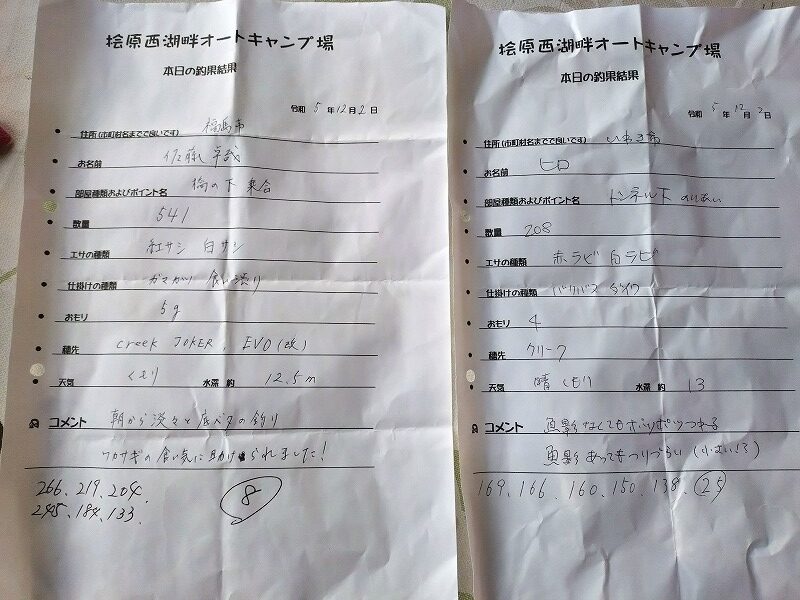 桧原西湖畔オートキャンプ場
本日の釣果結果
令和 5 年 12 月 2 日
住所(市町村名までで良いです) 福島市
お名前 佐藤 卓哉
部屋種類およびポイント名 橋の下 乗合
数量 541
エサの種類 紅サシ 白サシ
仕掛けの種類 がまかつ 食い渋り
おモリ 5g
穂先 creek JOKER, EVO(改)
天気 くもり 水深 約 12.5m
コメント 朝から淡々と底ベタの釣り
ワカサギの食い気に助けられました!
266、219、204、
245、184、133、
8
桧原西湖畔オートキャンプ場
本日の釣果結果
令和 5 年 12 月 2 日
住所(市町村名までで良いです) いわき市
お名前 ヒロ
部屋種類およびポイント名 トンネル下 のりあい
数量 208
エサの種類 赤ラビ 白ラビ
仕掛けの種類 バクバク ダイワ
おモリ 4
穂先 クリーク
天気 晴 くもり 水深 約 13
コメント 魚影なくてもポツポツつれる
魚影あってもつりづらい (小さい!!)
169、166、160、150、138、25